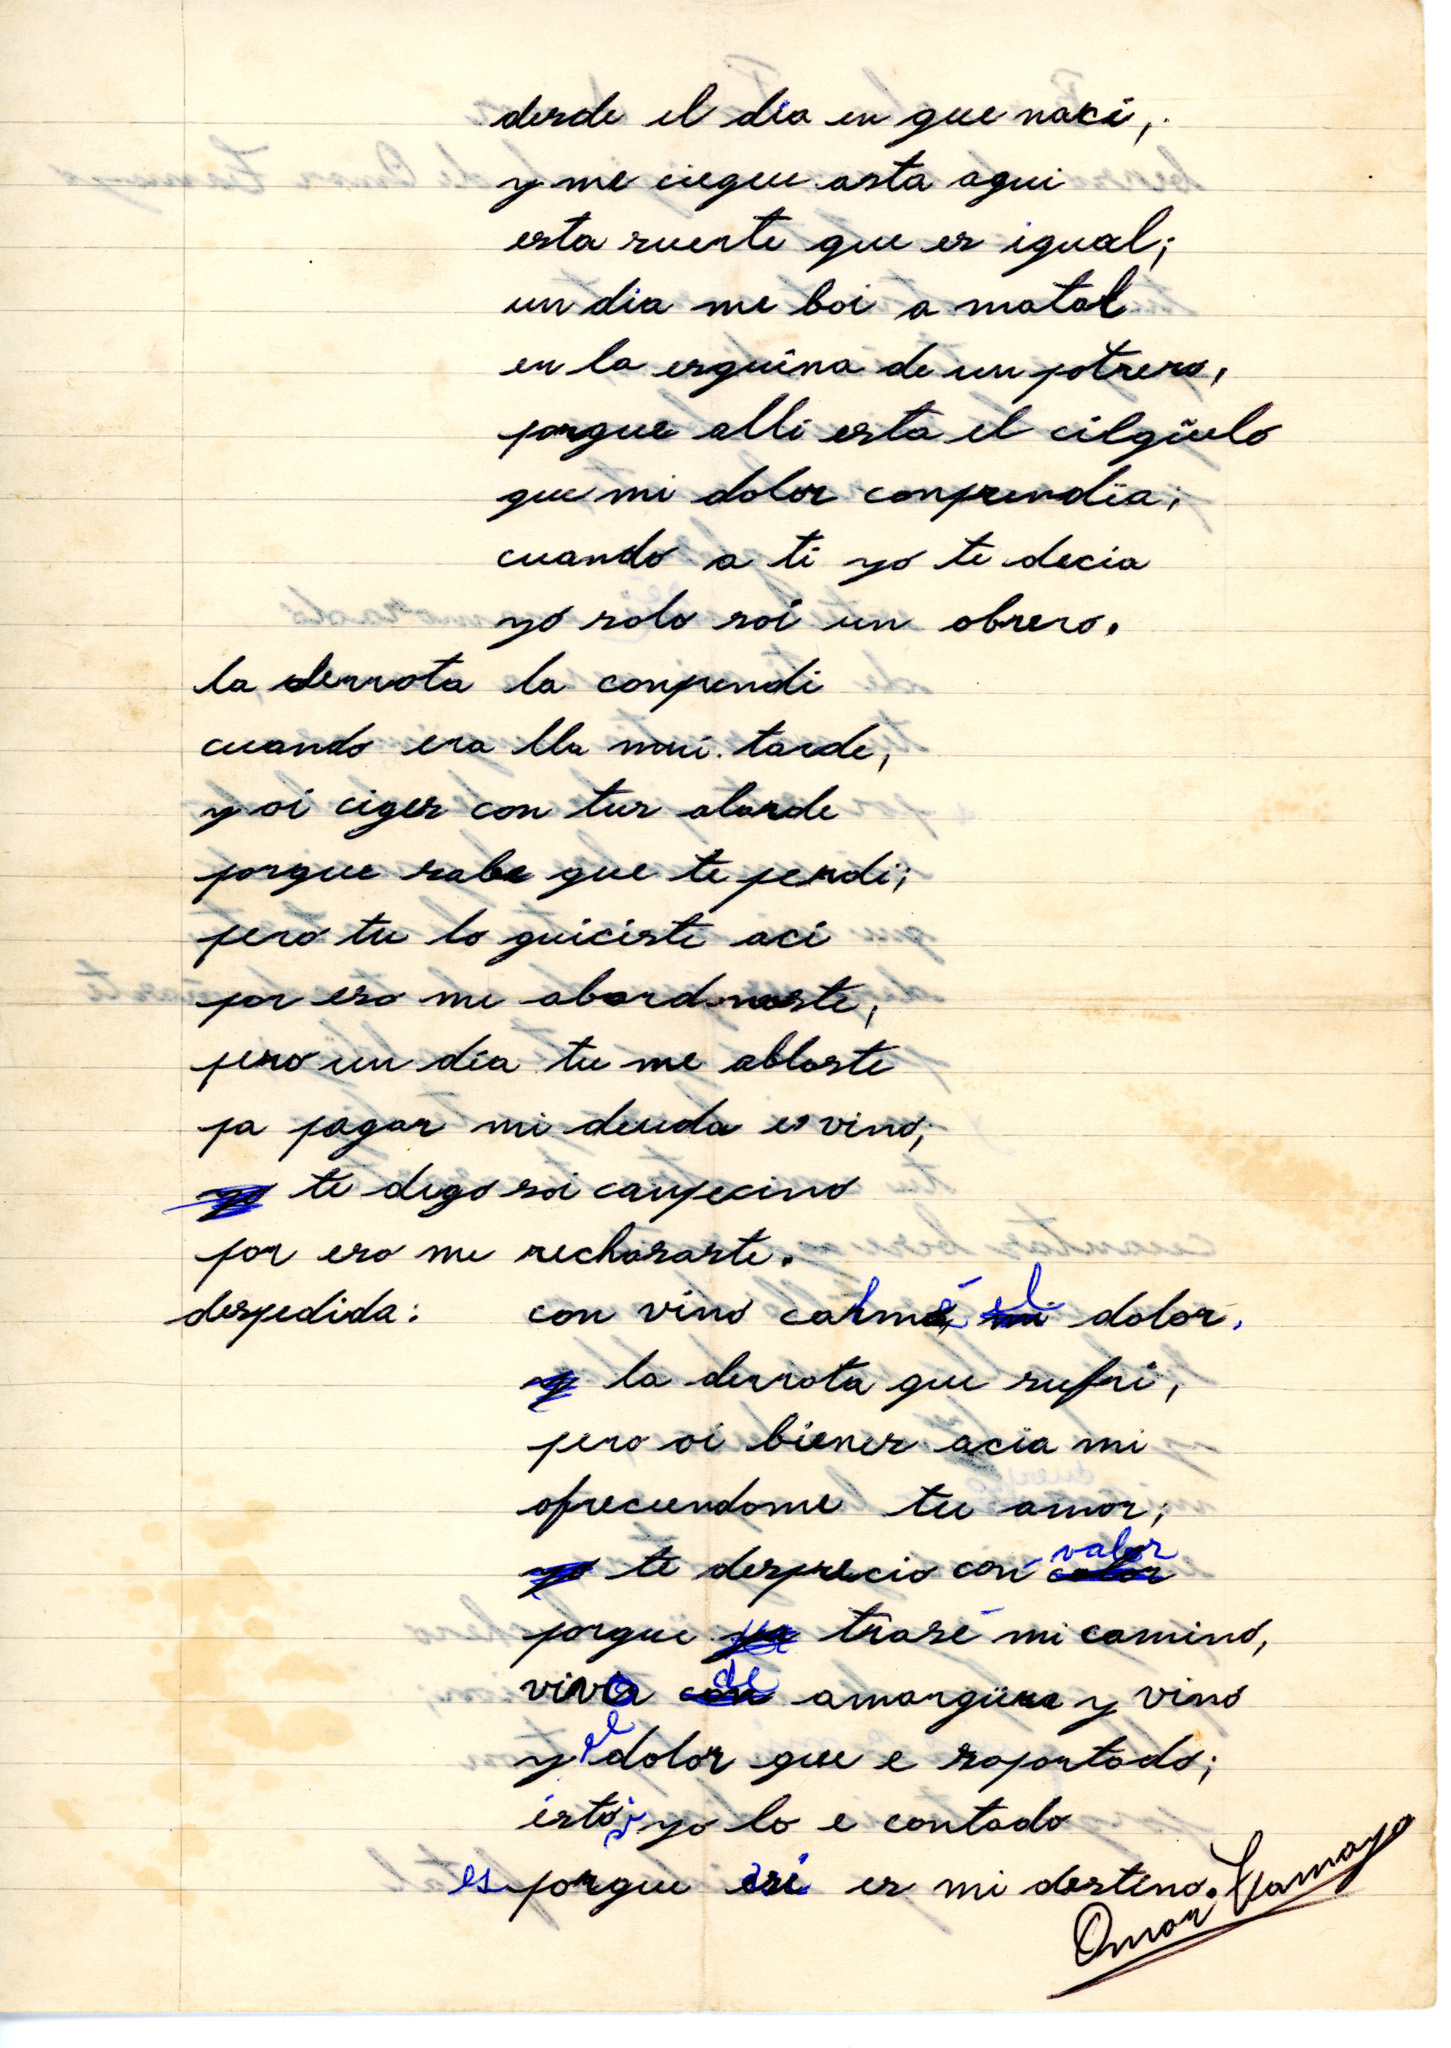 desde el día en que naci,
y me ciegeu asta aqui
esta suerte que es igual;
un dia me boi a matal
en la esquina de un potrero,
porque alli esta el cilgüelo
que mi dolor conprendia;
cuando a ti yo te decia
yo solo soi un obrero.
la derrota la conpendi
cuando era lla mui tarde,
y oi ciges con tus alarde
porque sabe que te perdi;
pero tu lo quiciste aci
por eso me abandonaste,
pero un día tu me ablaste
pa pagar mi deuda es vino,
yo te digo soi canpecino
por eso me rechasaste.
despedida: con vino calmé, mi el dolor,
y la derrota que sufri,
pero oi bienes acia mi
ofreciendome tu amor;
yo te desprecio con color valor
porque ya trasé mi camino,
vivo con de amargüra y vino
y el dolor que e soportado;
ésto yo lo e contado
es porque así es mi destino.
Omar Tamayo